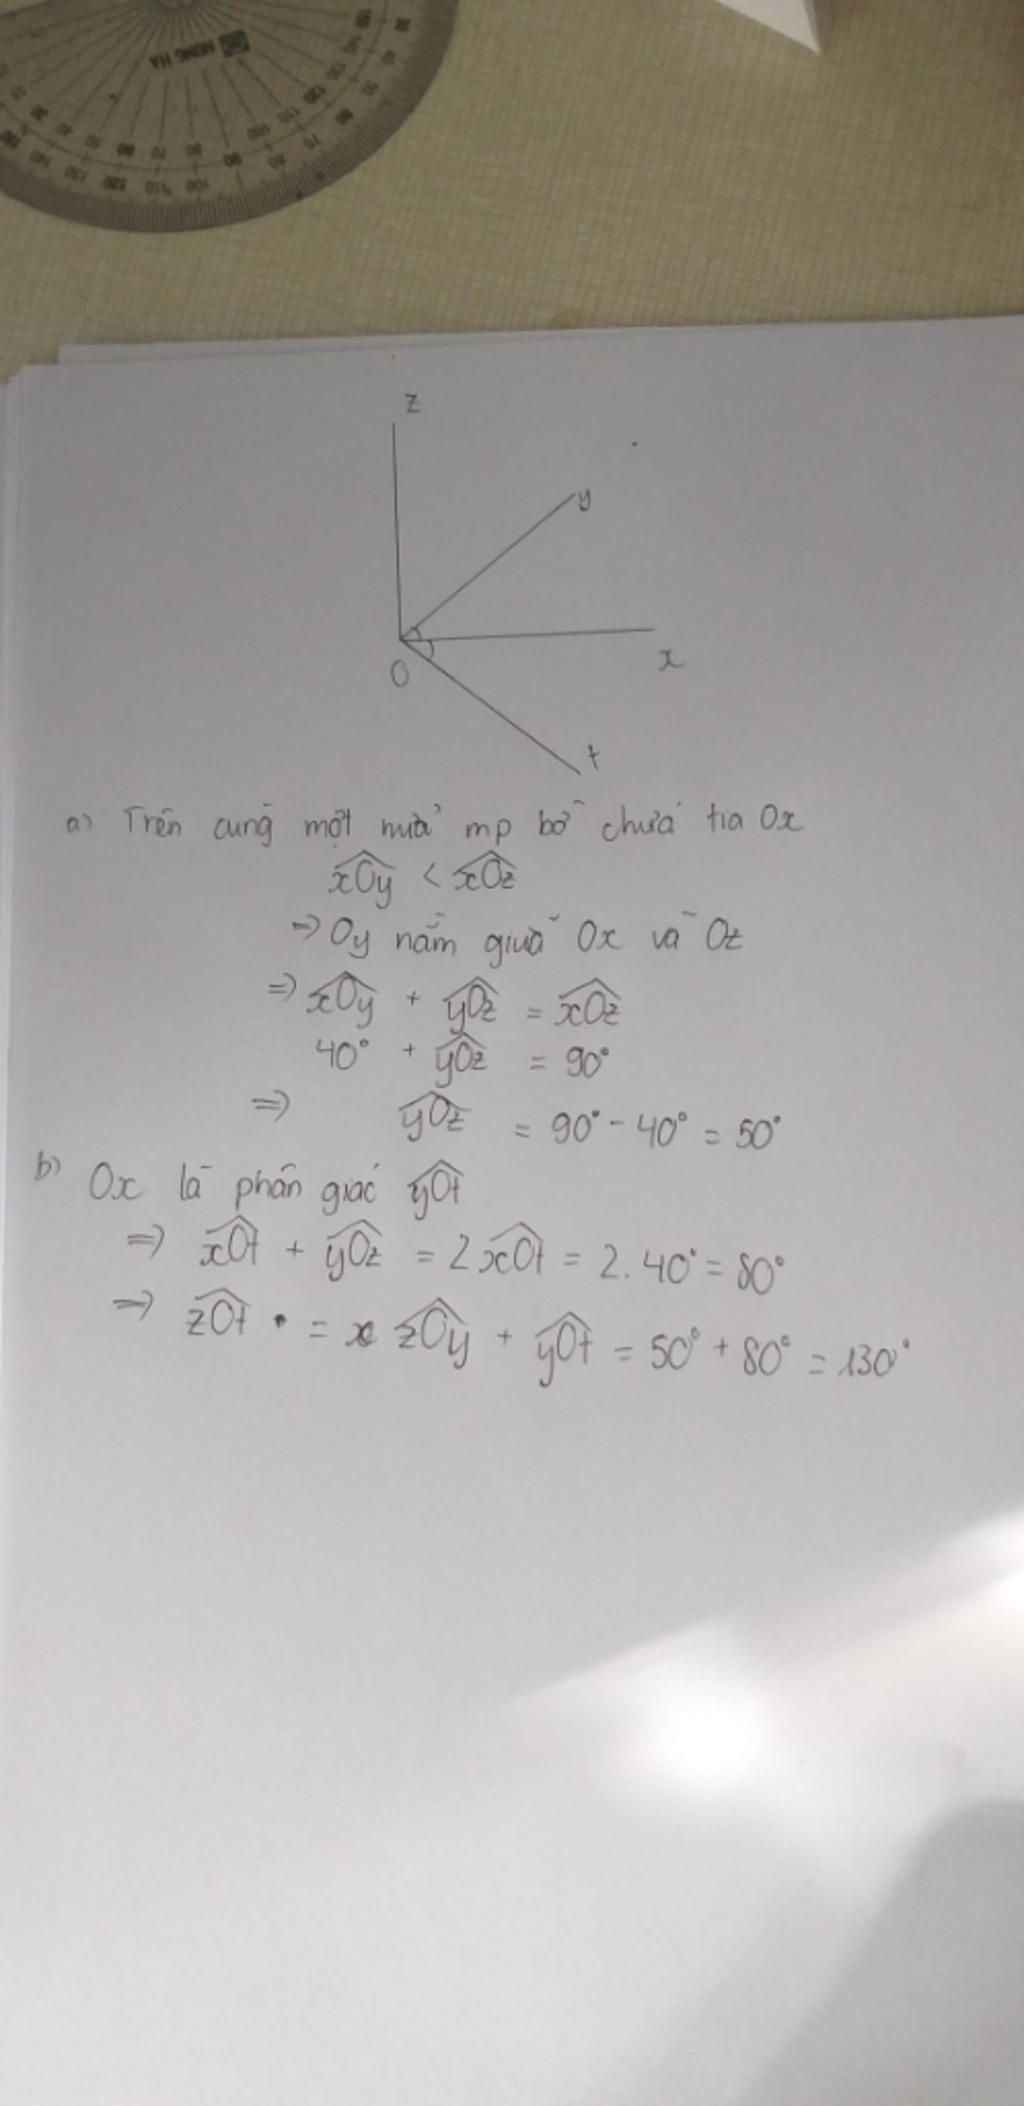 HONG HA
z
y
x
O
t
a) Trên cùng một nửa mp bờ chứa tia Ox
xOy < xOz
=> Oy nằm giữa Ox và Oz
=> xOy + yOz = xOz
40° + yOz = 90°
=> yOz = 90° - 40° = 50°
b) Ox là phân giác yOt
=> xOt + yOz = 2xOt = 2.40° = 80°
=> zOt = zOy + yOt = 50° + 80° = 130°